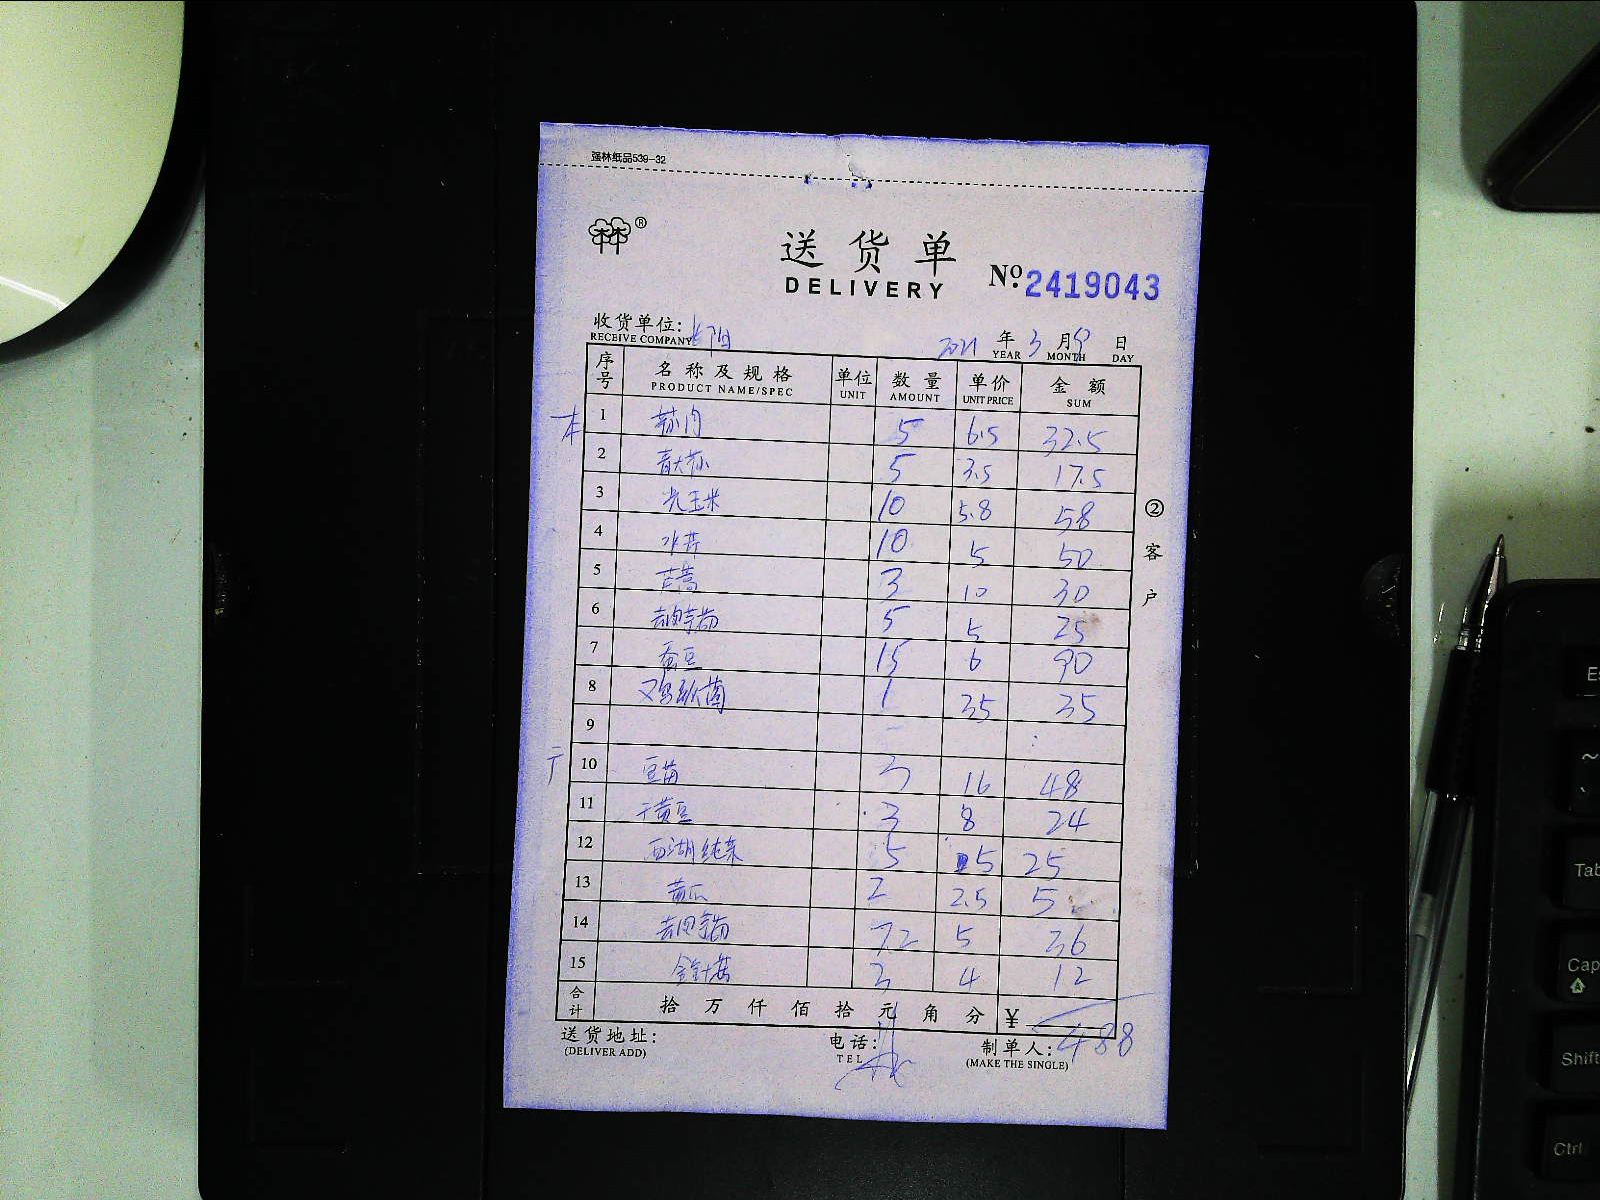 强林纸品539-32
送货单
DELIVERY
No. 2419043
收货单位:
RECEIVE COMPANY
2021 年 3 月 9 日
YEAR MONTH DAY
序号 名称及规格 单位 数量 单价 金额
PRODUCT NAME/SPEC UNIT AMOUNT UNIT PRICE SUM
本 1 蒜肉 5 6.5 32.5
2 青大蒜 5 3.5 17.5
3 光玉米 10 5.8 58
4 水芹 10 5 50
5 3 10 30
6 5 5 25
7 蚕豆 15 6 90
8 1 35 35
9
10 豆苗 3 16 48
11 干黄豆 3 8 24
12 西湖纯菜 5 5 25
13 黄瓜 2 2.5 5
14 72 5 36
15 金针菇 3 4 12
合计 拾 万 仟 佰 拾 元 角 分 ¥
488
送货地址:
(DELIVER ADD)
电话:
TEL
制单人:
(MAKE THE SINGLE)
②客户